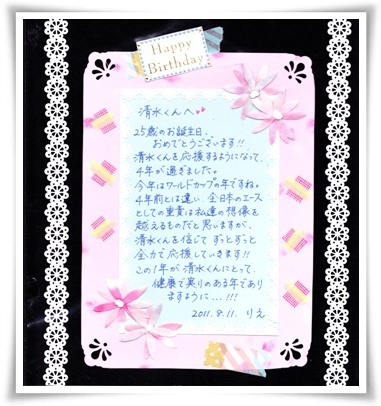 Happy
Birthday
清水くんへ
25歳のお誕生日、
おめでとうございます!!
清水くんを応援するようになって、
4年が過ぎました。
今年はワールドカップの年ですね。
4年前とは違い、全日本のエース
としての重責は私達の想像を
越えるものだと思いますが、
清水くんを信じて ずっとずっと
全力で応援していきます!!
この1年が 清水くんにとって、
健康で実りのある年であり
ますように...!!!
2011.8.11. りえ